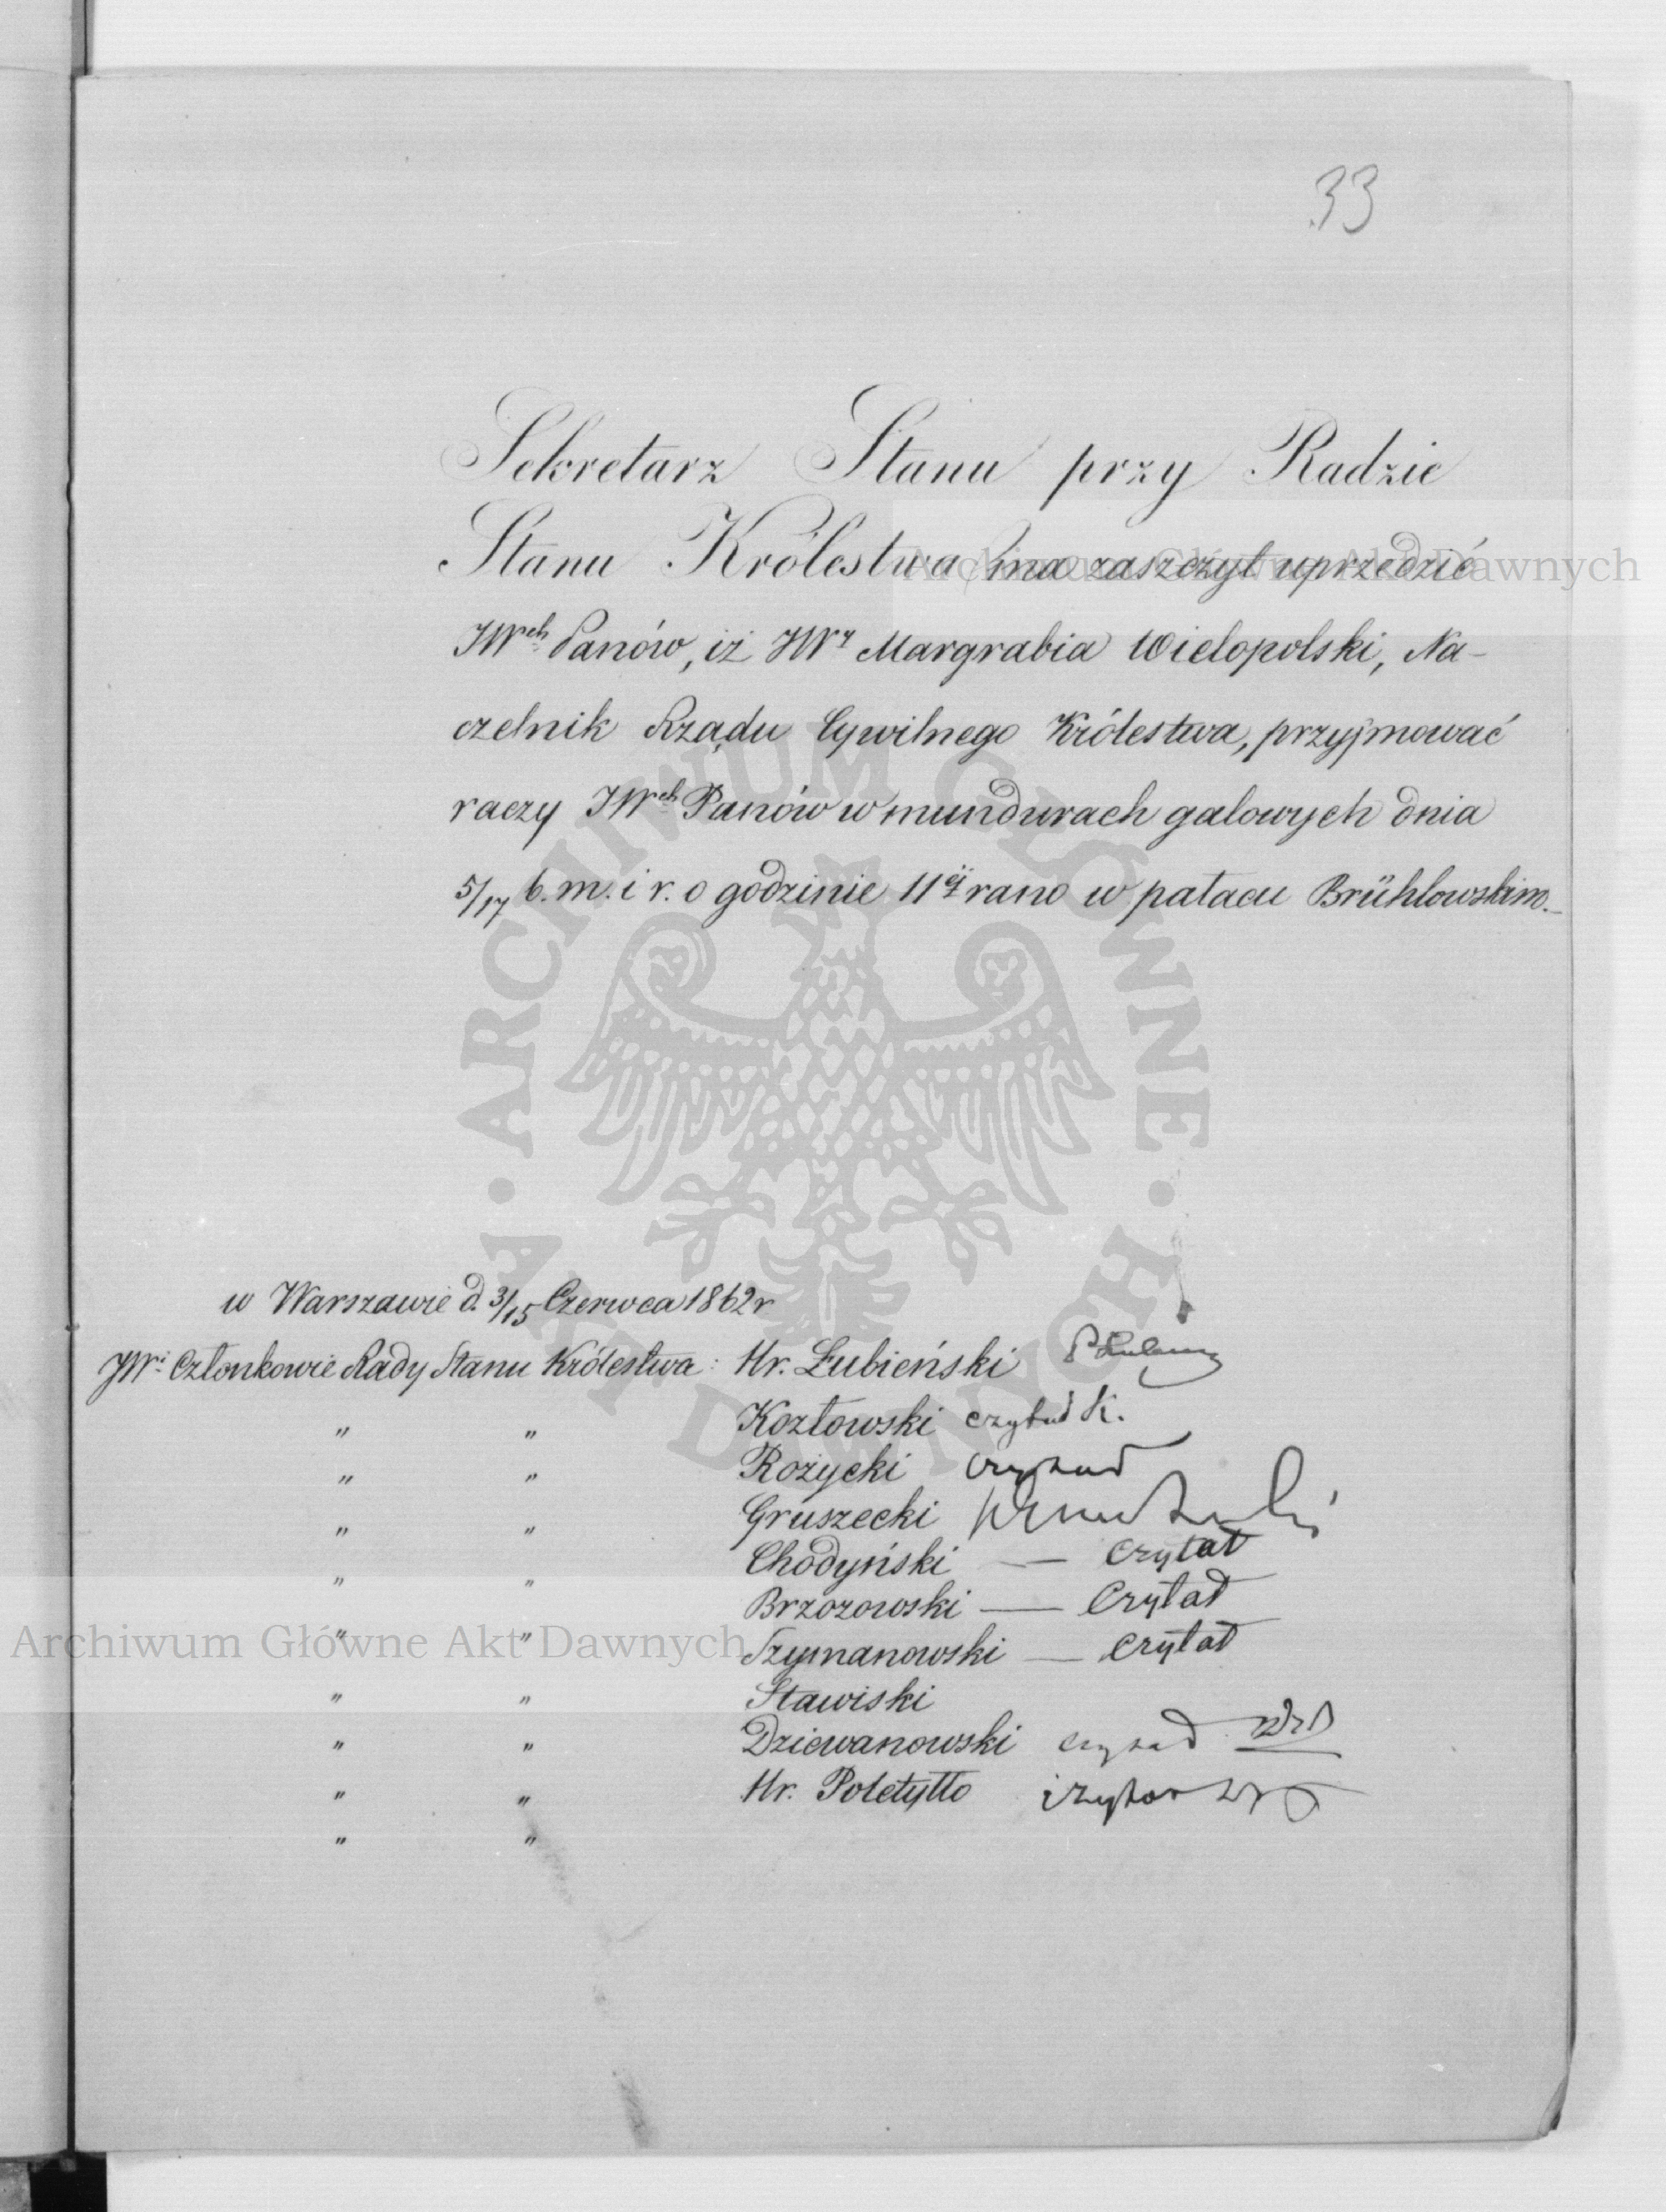 33
Sekretarz Stanu przy Radzie
Stanu Królestwa ma zaszczyt uprzedzić
JWch Panów, iż JWy Margrabia Wielopolski, Na-
czelnik Rządu Cywilnego Królestwa, przyjmować
raczy JWch Panów w mundurach galowych dnia
5/17 b. m. i r. o godzinie 11ej rano w pałacu Brühlowskim.
w Warszawie d. 3/15 Czerwca 1862 r
JWi Członkowie Rady Stanu Królestwa: Hr. Łubieński
" " Kozłowski czytał K.
" " Rożycki czytał
" " Gruszecki
" " Chodyński — Czytał
" " Brzozowski — Czytał
" " Szymanowski — Czytał
" " Stawiski
" " Dziewanowski czytał
" " Hr. Poletyłło czytał
" "
Archiwum Główne Akt Dawnych
ARCHIWUM GŁÓWNE · AKT DAWNYCH ·
Archiwum Główne Akt Dawnych